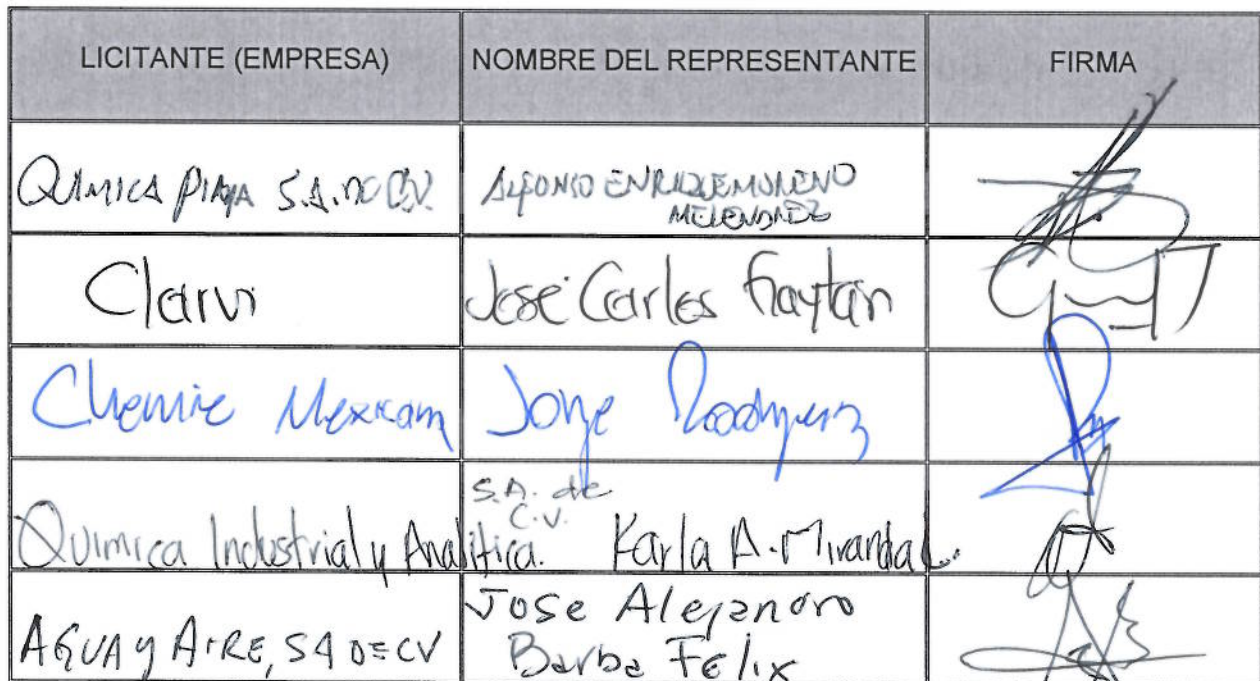 LICITANTE (EMPRESA) NOMBRE DEL REPRESENTANTE FIRMA
QUIMICA S.A. DE C.V. ALFONSO ENRIQUE MORENO
MELENDREZ
Clarvi José Carlos Gaytán
Chemie Mexicana Jorge Rodríguez
S.A. de
C.V.
Quimica Industrial y Analítica. Karla A. Miranda L.
AGUA y AIRE, SA DE CV Jose Alejandro
Barba Felix